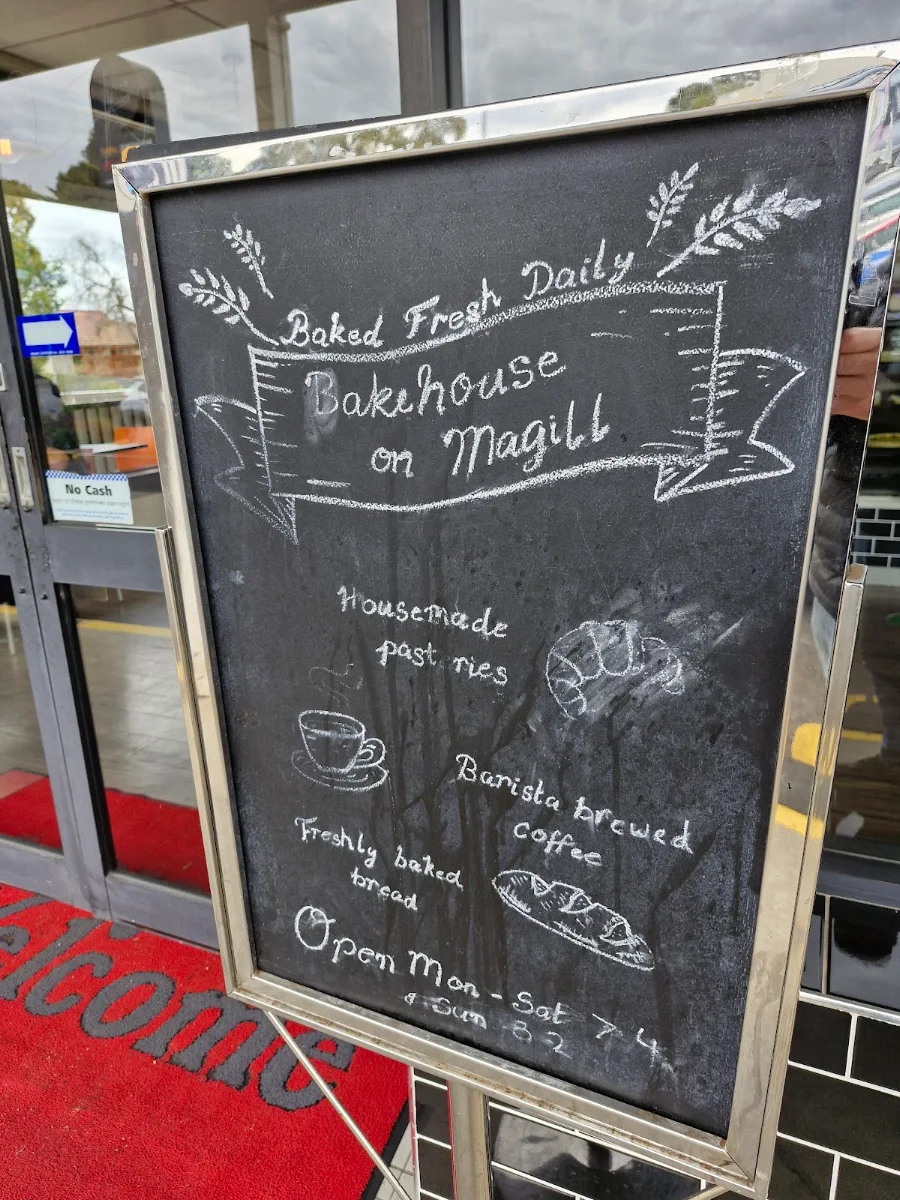 Baked Fresh Daily
Bakehouse
on Magill
Housemade
pastries
Barista brewed
coffee
Freshly baked
bread
Open Mon - Sat 7-4
& Sun 8-2
No Cash
Welcome